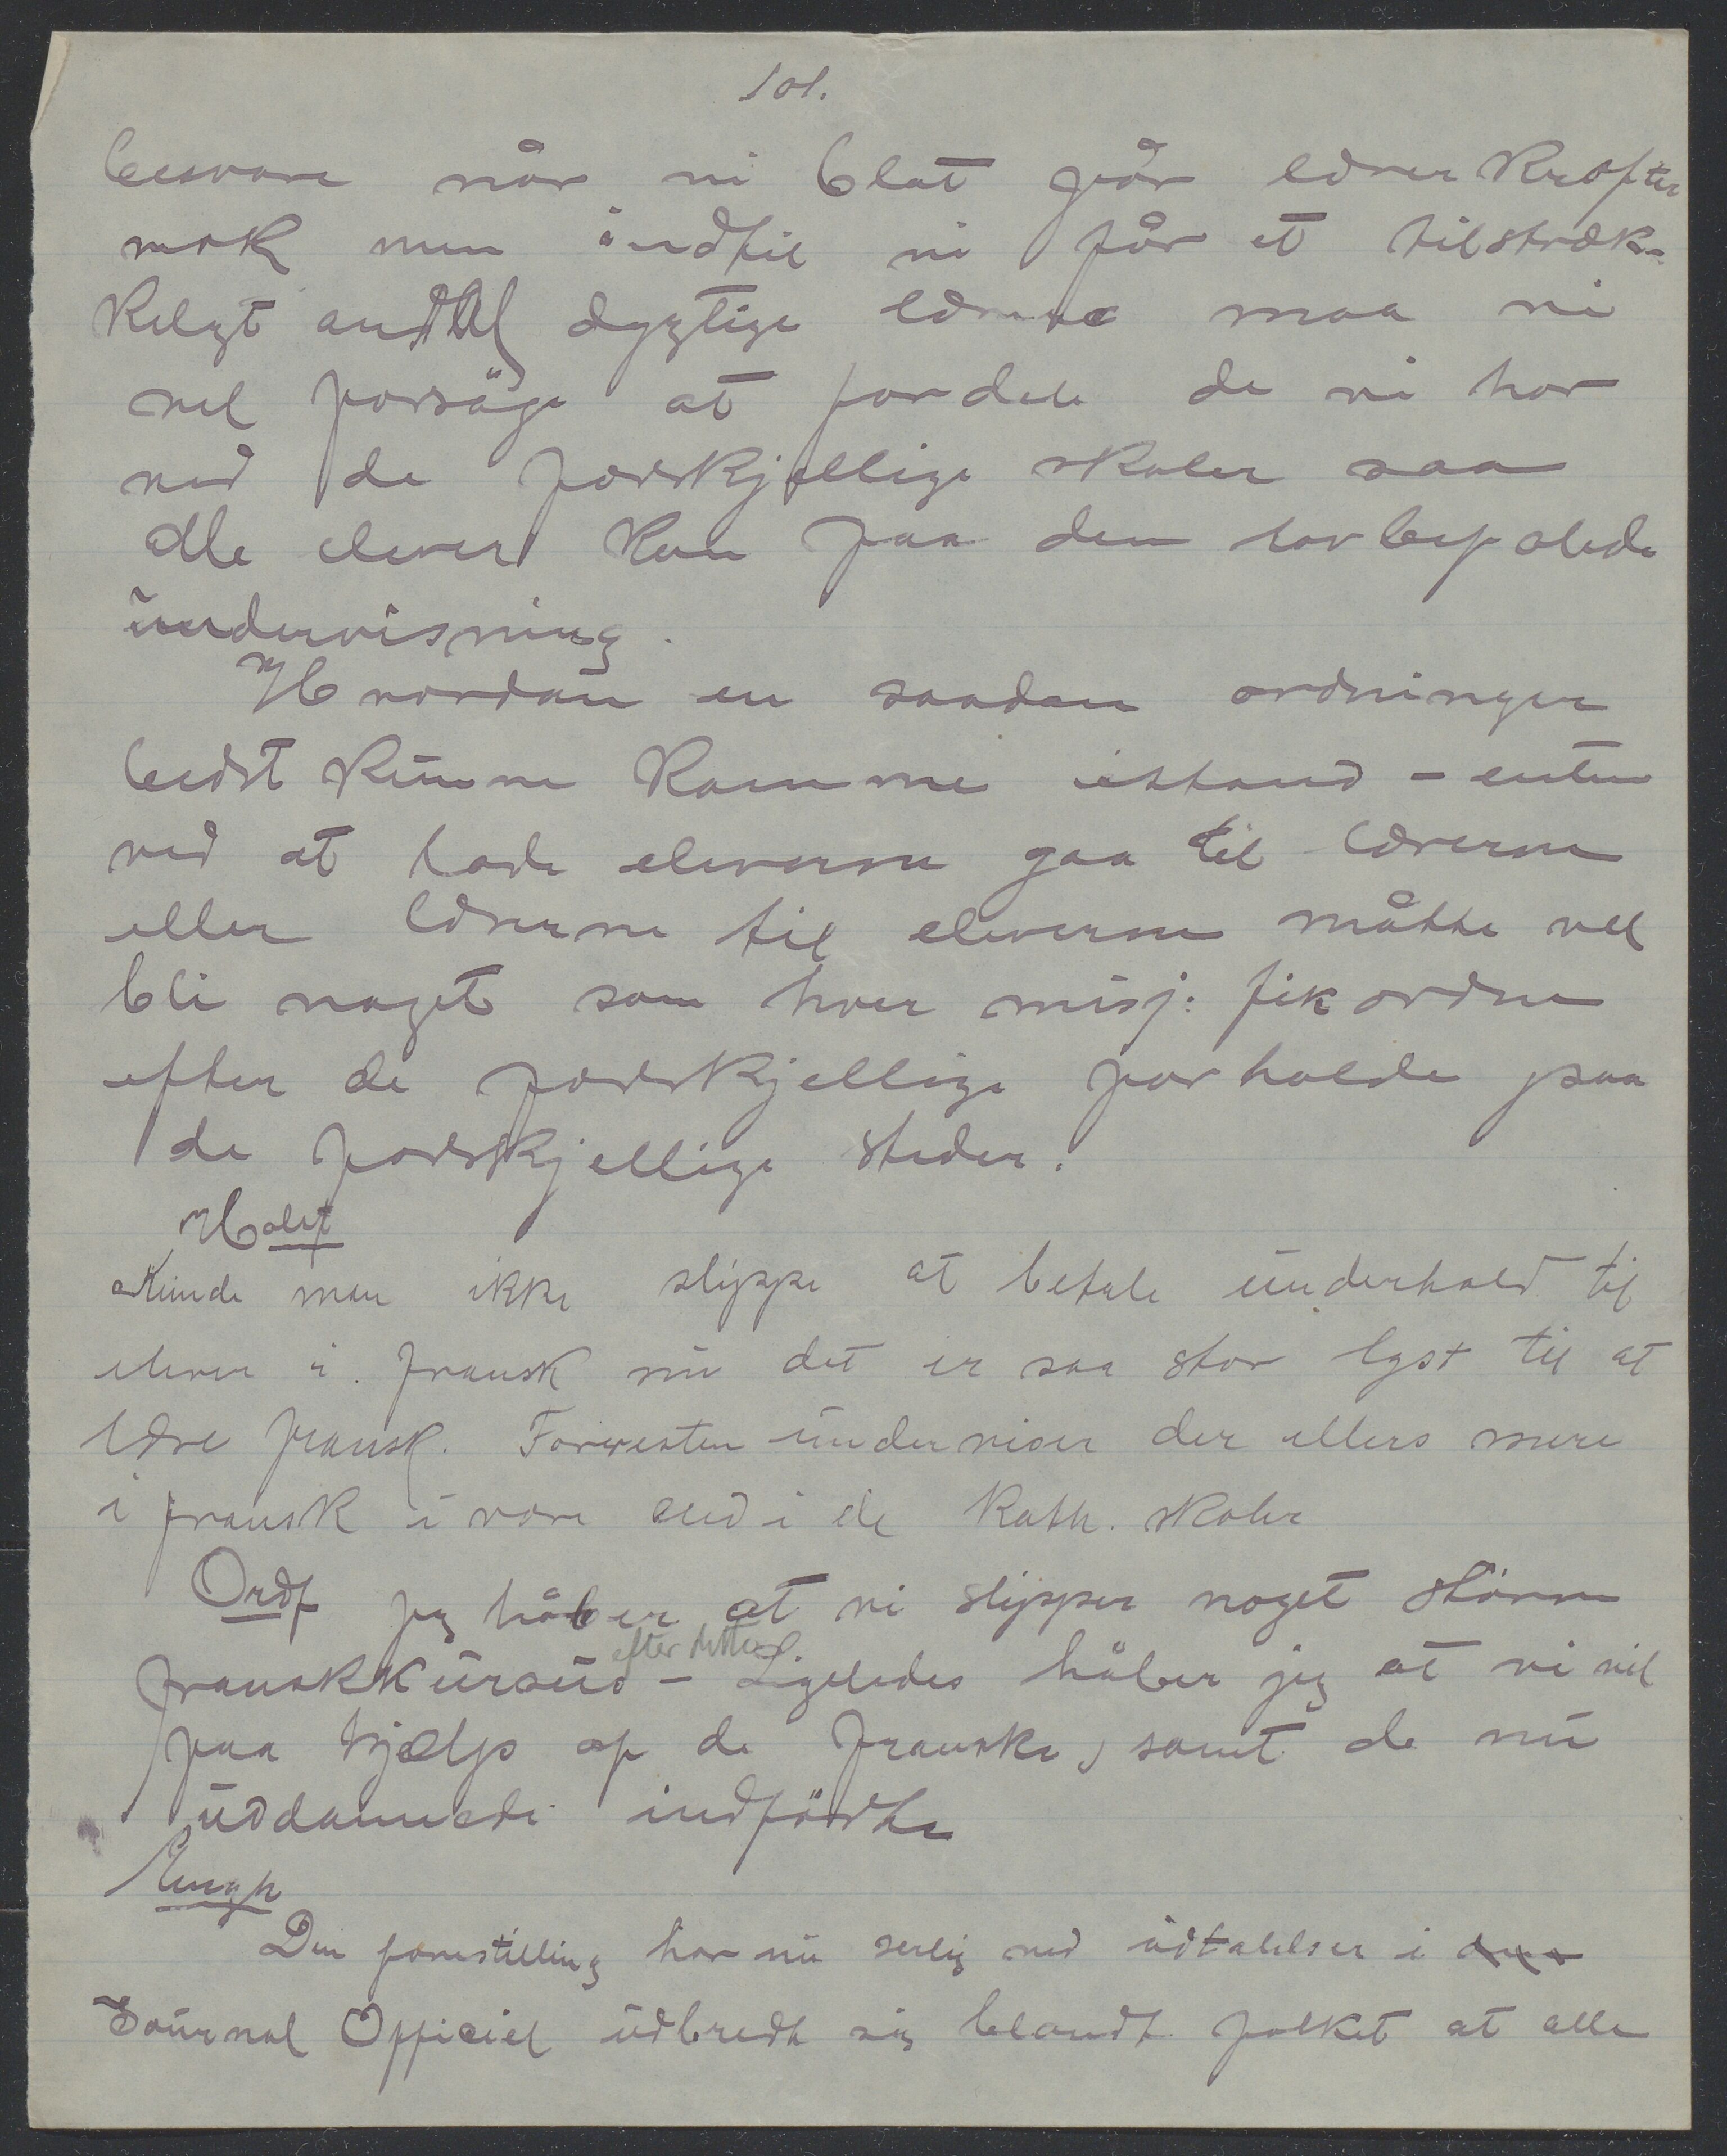 101.
besvare når vi blot får lærerkræfter
nok men indtil vi får et tilstræk-
keligt antal dygtige lærere maa vi
vel forsöge at fordele de vi har
ved de forskjellige skoler saa
alle elever kan faa den lovbefalede
undervisning.
Hvordan en saadan ordningen
bedst kunne komme istand - enten
ved at lade eleverne gaa til lærerne
eller lærerne til eleverne måtte vel
bli noget som hver misj: fik ordne
efter de forskjellige forholde paa
de forskjellige steder.
Holst
Kunde man ikke slippe at betale underhold til
elever i fransk nu det er saa stor lyst til at
lære fransk. Forresten underviser der ellers mere
i fransk i vore end i de kath. skoler
Ordf jeg håber at vi slipper noget större
efter dette
franskkursus - Ligeledes håber jeg at vi vil
faa hjælp af de franske, samt de nu
uddannede indfödte
Den forestilling har nu serlig ved udtalelser i
Journal Officiel udbredt sig blandt folket at alle